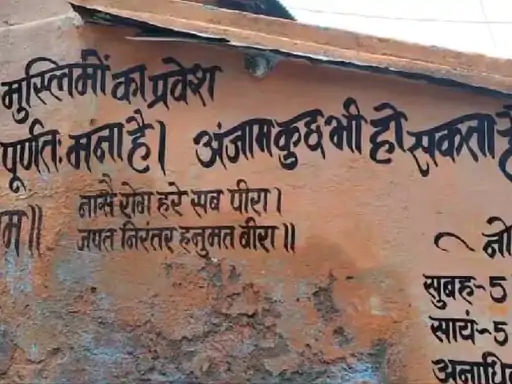 मुस्लिमों का प्रवेश
पूर्णतः मना है। अंजाम कुछ भी हो सकता है
नासै रोग हरे सब पीरा।
जपत निरंतर हनुमत बीरा॥
म॥
नो
सुबह-5
सायं-5
अनाधि